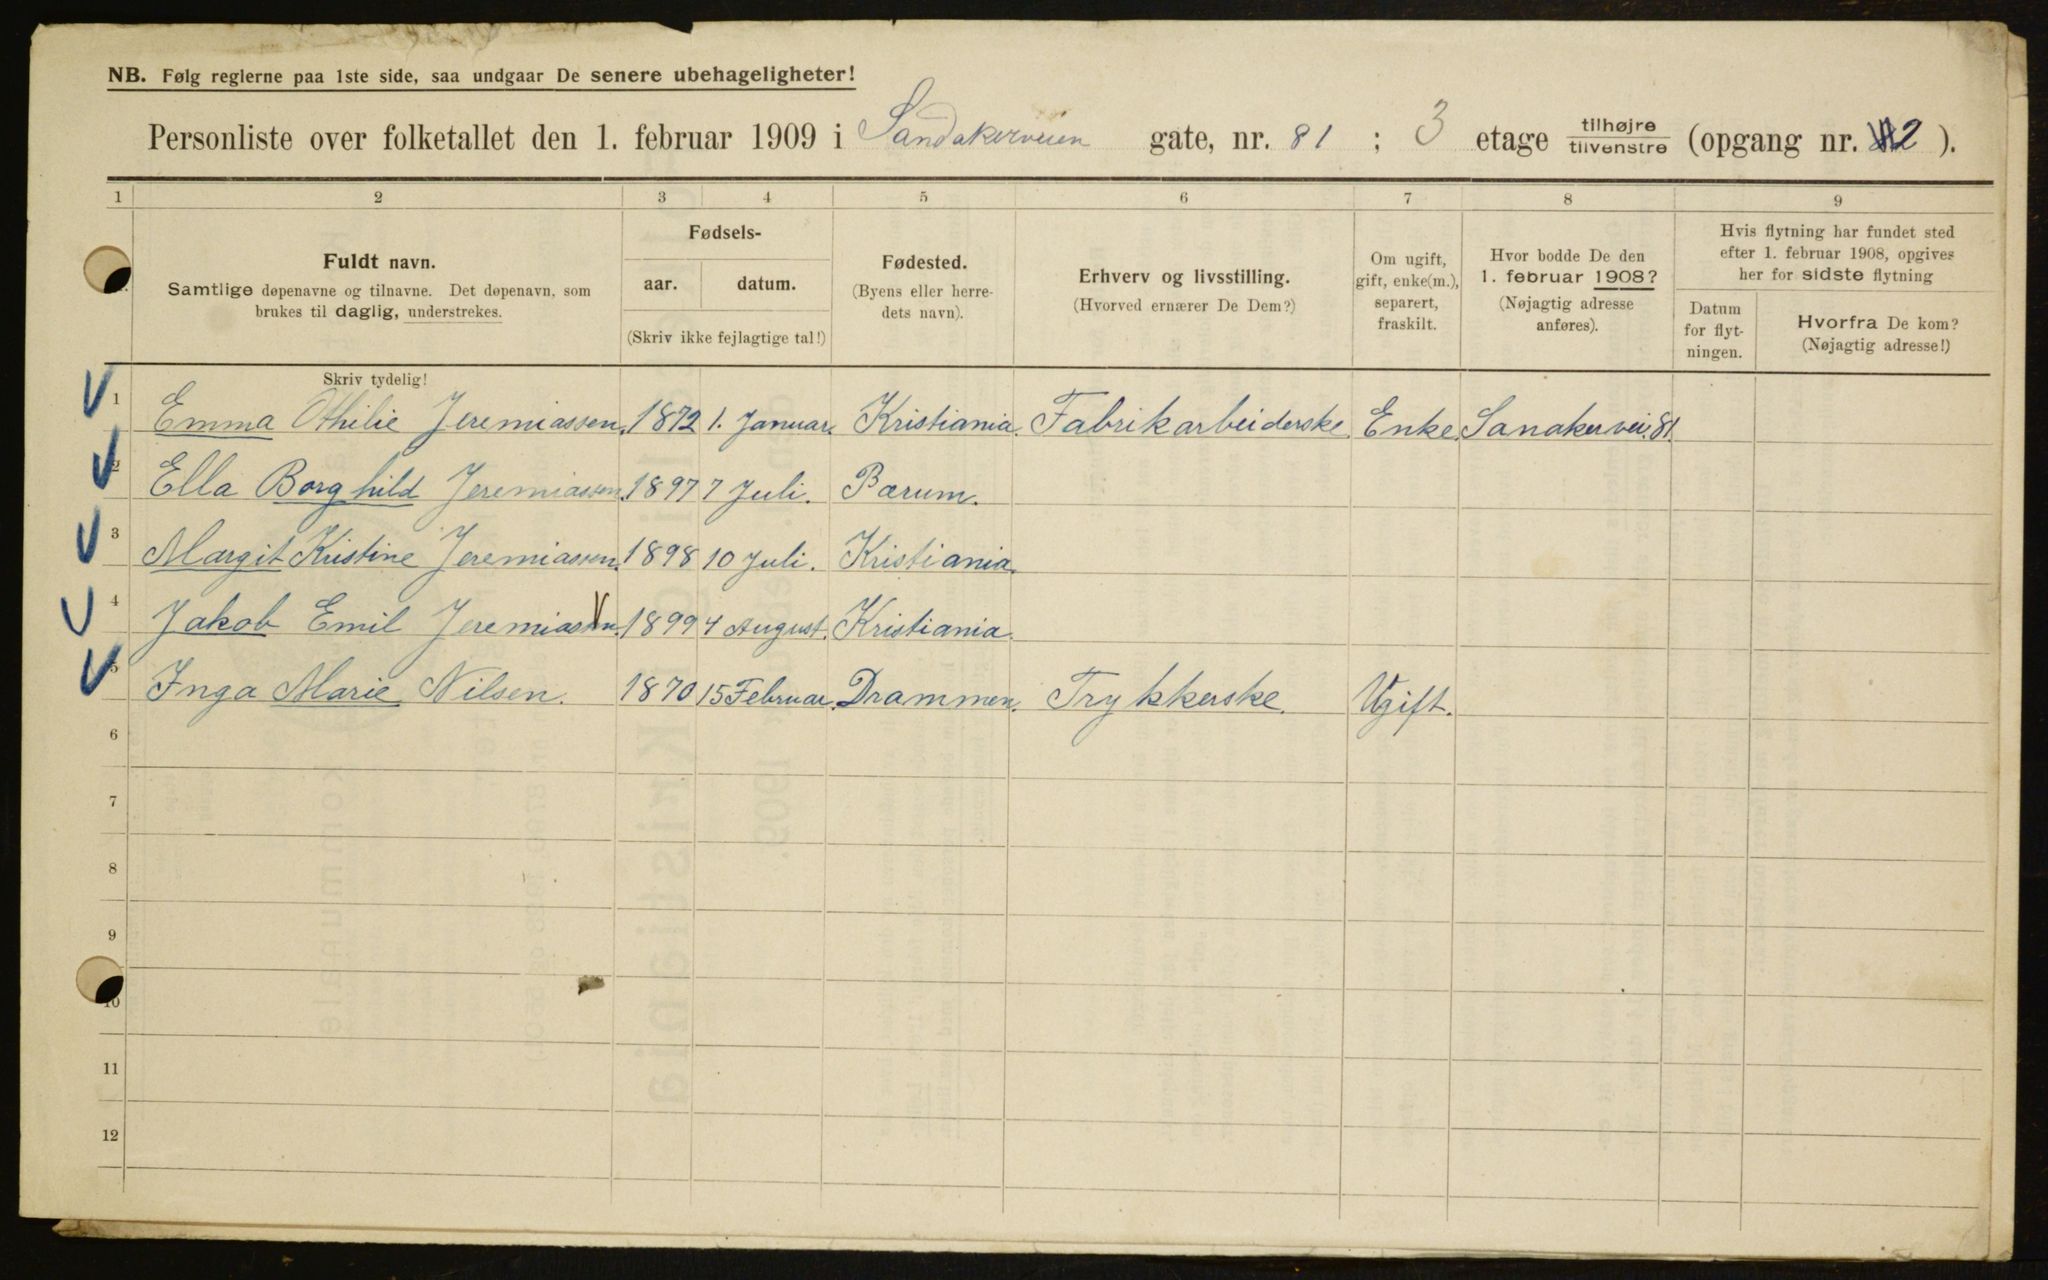 NB. Følg reglerne paa 1ste side, saa undgaar De senere ubehageligheter!
Personliste over folketallet den 1. februar 1909 i Sandakerveien gate, nr. 81 ; 3 etage tilhøjre tilvenstre (opgang nr. 2 ).
1 2 3 4 5 6 7 8 9
Fuldt navn.
Samtlige døpenavne og tilnavne. Det døpenavn, som
brukes til daglig, understrekes.
Skriv tydelig!
Fødsels-
aar. datum.
(Skriv ikke fejlagtige tal!)
Fødested.
(Byens eller herre-
dets navn).
Erhverv og livsstilling.
(Hvorved ernærer De Dem?)
Om ugift,
gift, enke(m.),
separert,
fraskilt.
Hvor bodde De den
1. februar 1908?
(Nøjagtig adresse
anføres).
Hvis flytning har fundet sted
efter 1. februar 1908, opgives
her for sidste flytning
Datum
for flyt-
ningen.
Hvorfra De kom?
(Nøjagtig adresse!)
1 Emma Othilie Jeremiassen. 1872 1. Januar. Kristiania. Fabrikarbeiderske. Enke. Sanakervei. 81
2 Ella Borghild Jeremiassen. 1897 7 Juli. Bærum.
3 Margit Kristine Jeremiassen. 1898 10 Juli. Kristiania.
4 Jakob Emil Jeremiassen. 1899 4 August. Kristiania.
5 Inga Marie Nilsen. 1870 15 Februar. Drammen. Trykkerske. Ugift.
6
7
8
9
10
11
12